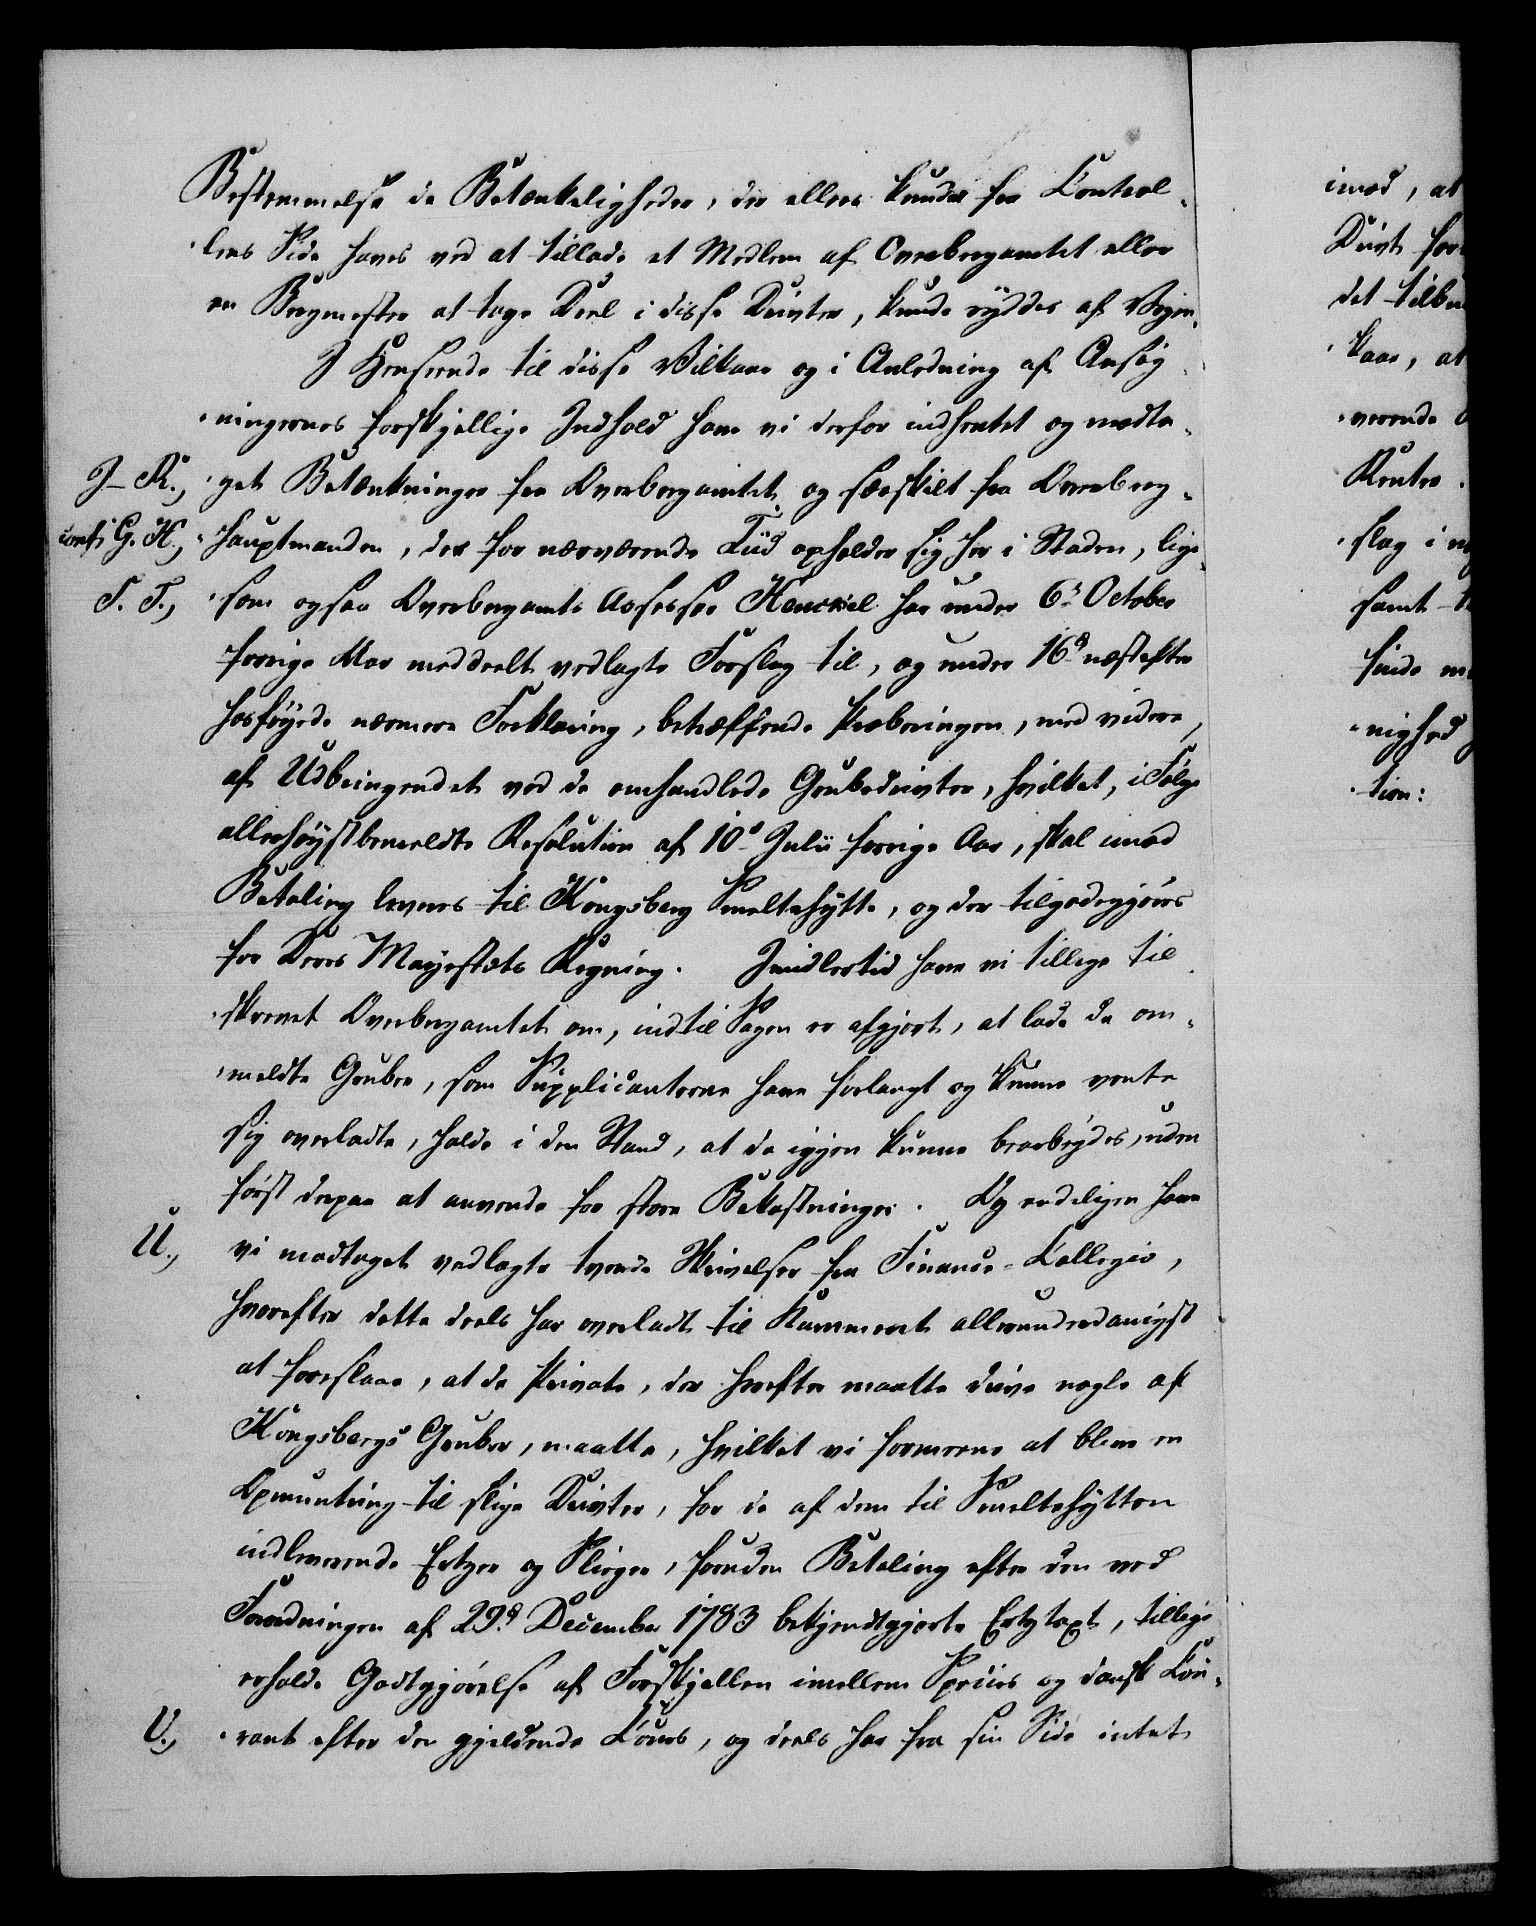 Bestemmelse de Betænkeligheder, der ellers kunde fra Control-
lens Side haves ved at tillade et Medlem af Overbergamtet eller
en Bergmester at tage Deel i disse Drivter, kunde ryddes af Vejen.
I Henseende til disse Vilkaar og i Anledning af Ansøg-
ningernes forskjellige Indhold have vi derfor indhentet og modta-
I–R., get Betænkninger fra Overbergamtet og særskilt fra Overberg-
conf. G. H., hauptmanden, der for nærværende Tiid opholder sig her i Staden, lige-
S. T., som ogsaa Overbergamts Assessor Henckel har under 6t October
forrige Aar meddeelt vedlagte Forslag til, og under 16d næstefter
hosføyede nærmere Forklaring, betræffende Proberingen, med videre,
af Udbringendet ved de omhandlede Grubedrivter, hvilket, i Følge
allerhøystbemeldte Resolution af 10d Julii forrige Aar, skal imod
Betaling leveres til Kongsberg Smeltehytte, og der tilgodegjøres
for Deres Majestæts Regning. Imidlertid have vi tillige til-
skrevet Overbergamtet om, indtil Sagen er afgjort, at lade de om-
meldte Gruber, som Supplicanterne have forlangt og kunne vente
sig overladte, holde i den Stand, at de igjen kunne bearbeydes, uden
først derpaa at anvende for store Bekostninger. Og endeligen have
U., vi modtaget vedlagte tvende Skrivelser fra Finance-Collegio,
hvorefter dette deels har overladt til Kammeret allerunderdanigst
at foreslaae, at de Private, der herefter maatte drive nogle af
Kongsbergs Gruber, maatte, hvilket vi formeene at blive en
Opmuntring til slige Drivter, for de af dem til Smeltehytten
indleverende Ertzer og Sliger, foruden Betaling efter den ved
Forordningen af 29d December 1783 bekjendtgjorte Ertztaxt, tillige
erholde Godtgjørelse af Forskjellen imellem Species og dansk Cou-
V., rant efter den gjeldende Cours, og deels har fra sin Side intet
imod, at
det
kaar, at
verende
slag i
samt
finde
nighed
tion: